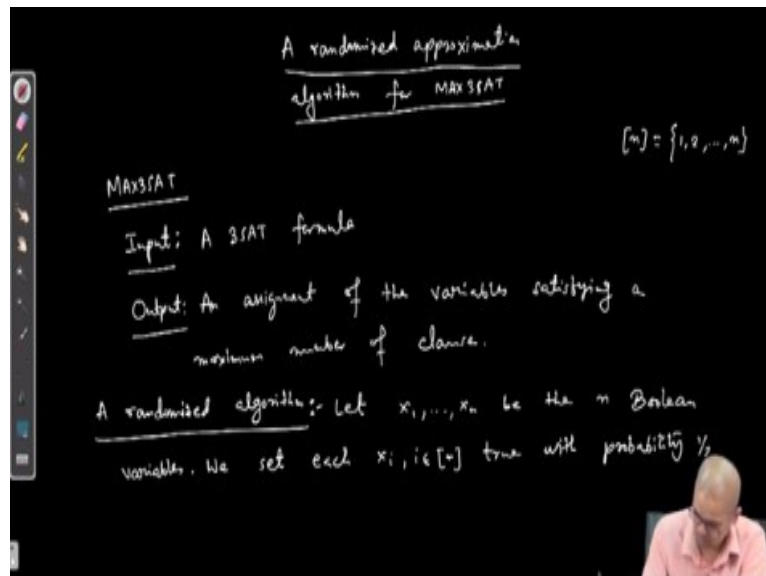 A randomized approximation
algorithm for MAX3SAT
[n] = {1,2,...,n}
MAX3SAT
Input: A 3SAT formula
Output: An assignment of the variables satisfying a
maximum number of clause.
A randomized algorithm:- Let x₁,...,xₙ be the n Boolean
variables. We set each xᵢ, i∈[n] true with probability ½